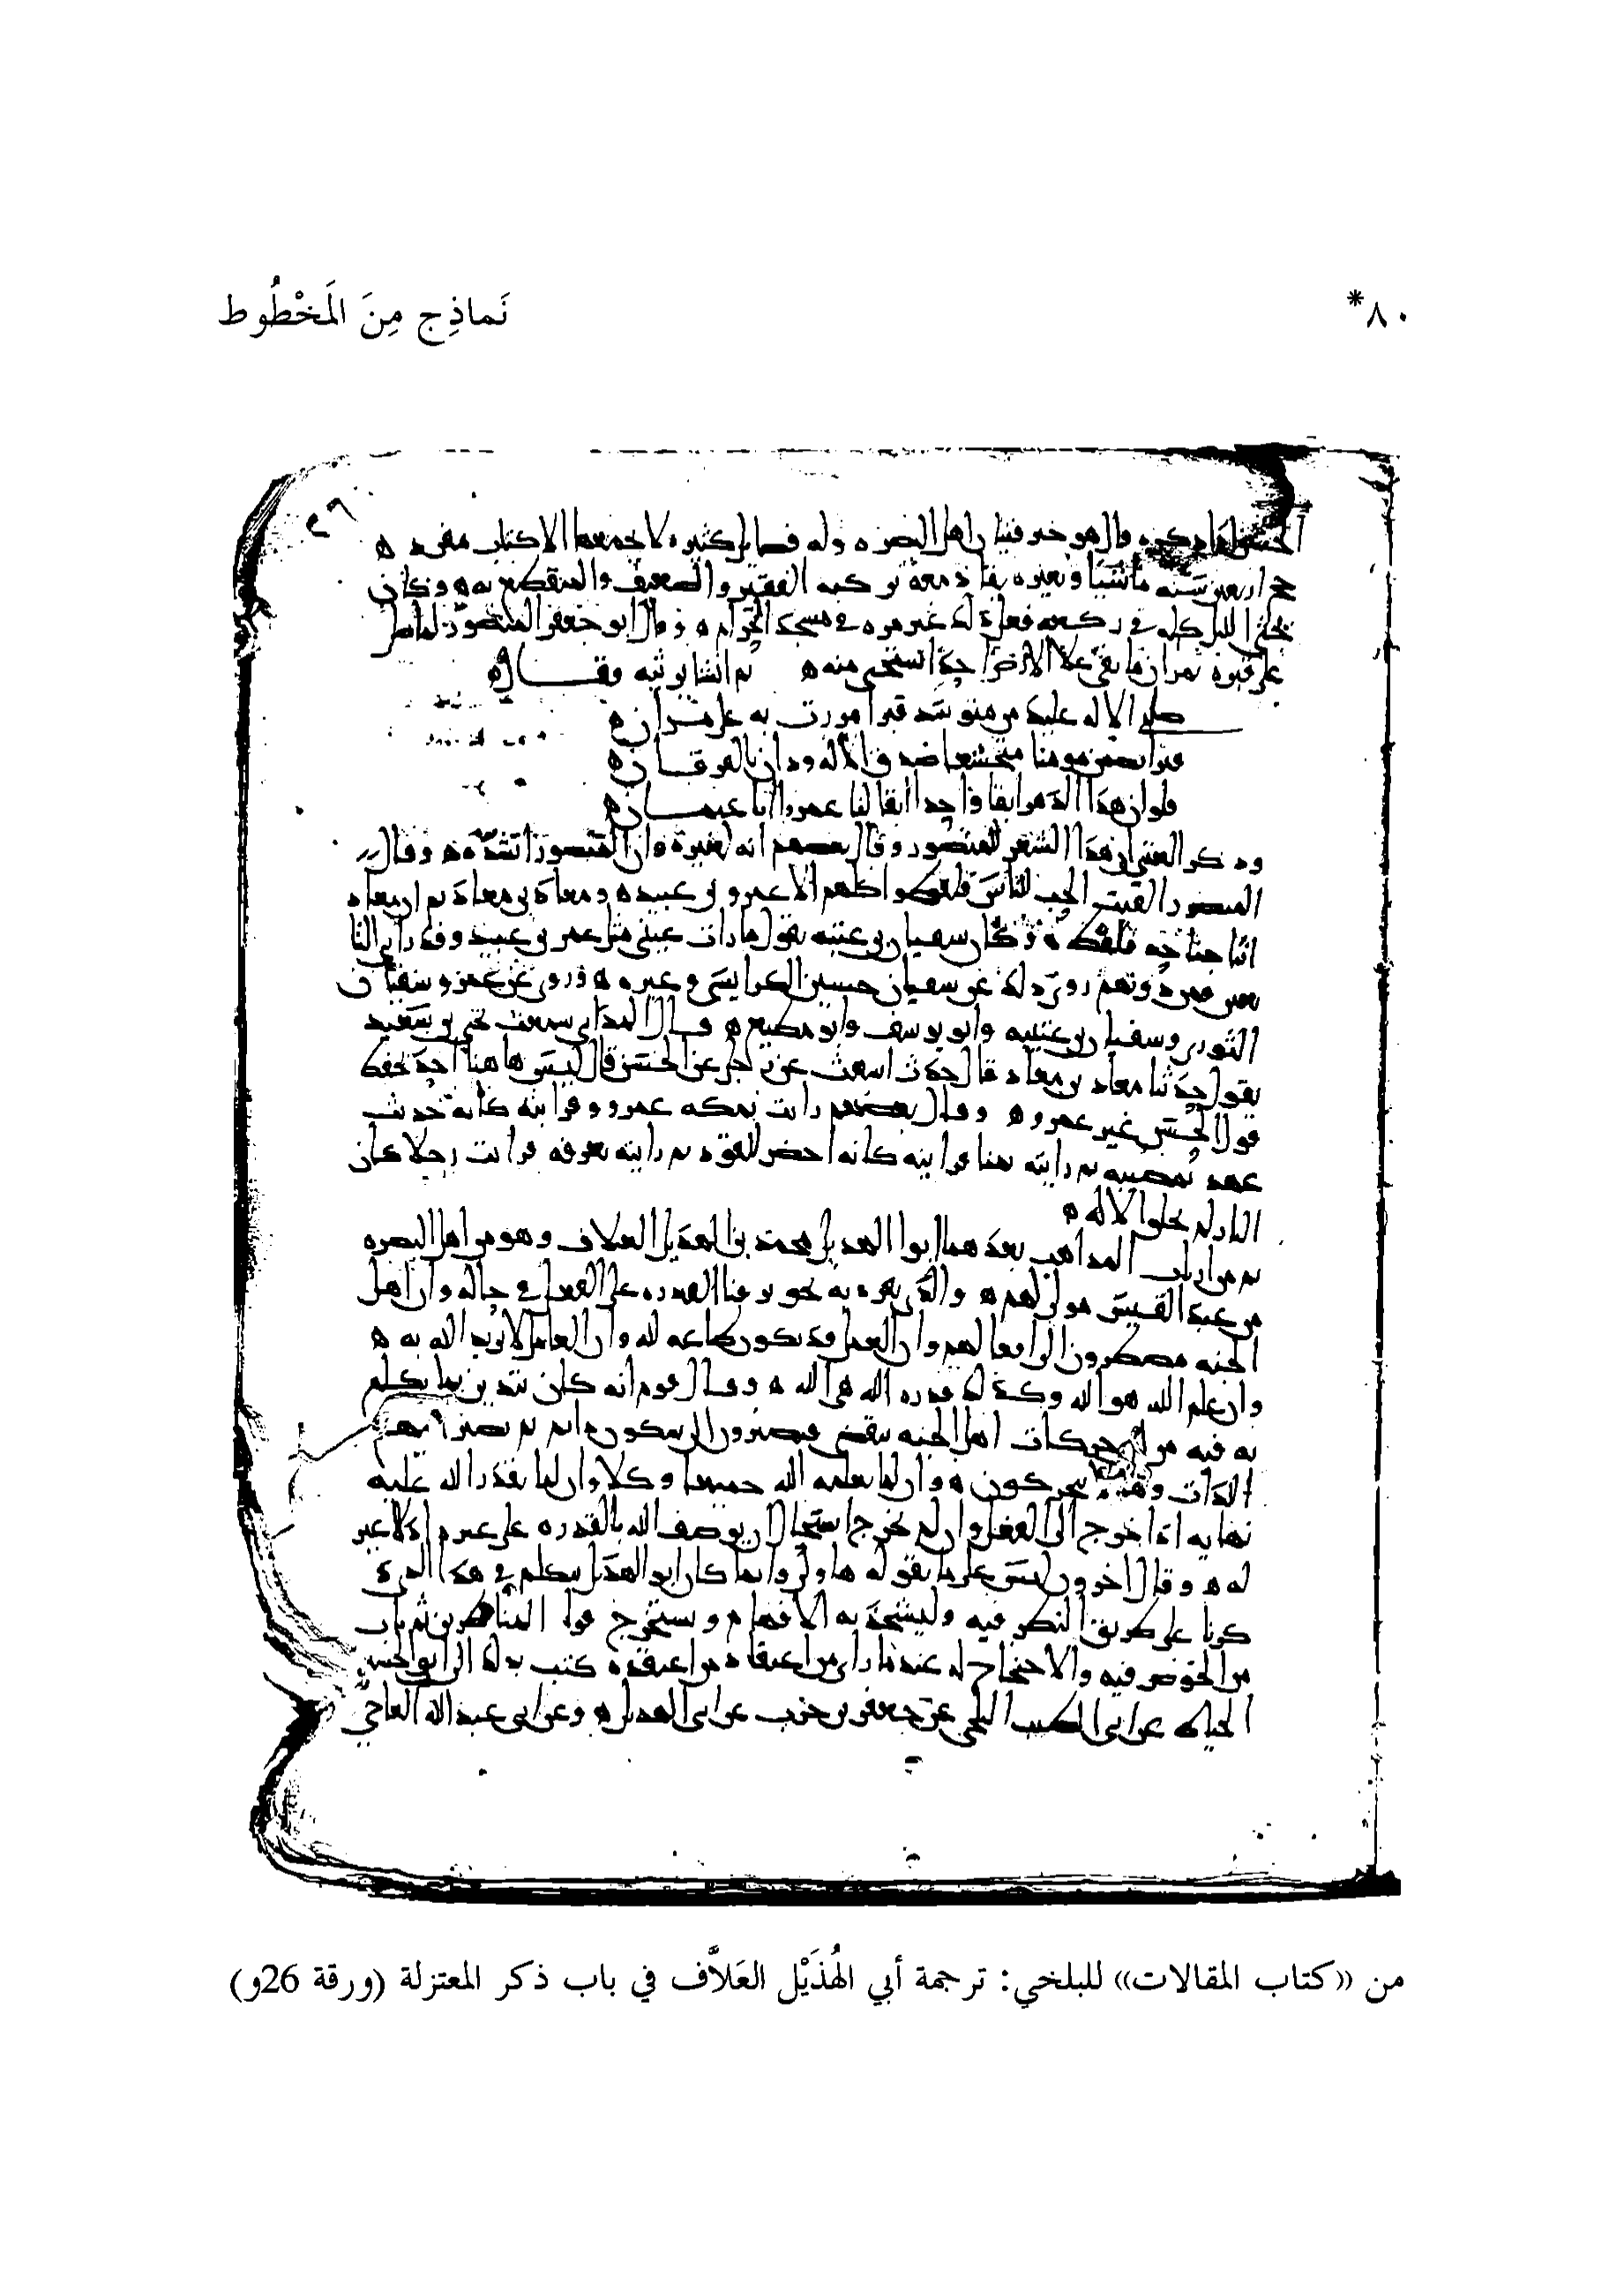 ٨٠*
نَماذِج مِنَ المَخْطُوط
٢٦
الحسن اذا ذكره قال هو خير فتيان اهل البصره وله فضايل كثيره لا يجمعها الا كتاب مفرد ه
حج اربعين سنه ماشيا وبعيره يقاد معه يركبه الفقير والضعيف والمنقطع به ه وكان
يحيى الليل كله في ركعه فعل ذلك غير مره في مسجد الحرام ه وقال ابو جعفر المنصور لما صلى
على قبره بمران ما بقي على الارض احد استحيي منه ه ثم انشا يرثيه وقال ه
صلى الاله عليك من متوسد قبرا مررت به على مران ه
قبرا تضمن مومنا متخشعا صدق الاله ودان بالفرقان ه
فلو ان هذا الدهر ابقا واحدا ابقا لنا عمروا ابا عثمان ه
وذكر العتبي ان هذا الشعر للمنصور وقال بعضهم انه لغيره وان المنصور انشده ه وقال
المنصور القيت الحب للناس فلقطوا كلهم الا عمرو بن عبيد ه ومعاذ بن معاذ ثم ان معاذ
انثا جناحه فلقط ه وكان سفيان بن عيينه يقول ما رات عيني مثل عمر بن عبيد وقد راى التا
بعين فمن دونهم روى ذلك عن سفيان حسين الكرابيسي وغيره ه وروى عن عمرو سفيان
الثوري وسفيان بن عيينه وابو يوسف وابو مطيع ه قال المدايني سمعت يحيى بن سعيد
يقول حدثنا معاذ بن معاذ قال حدث اشعث عن رجل عن الحسن قال ليس ها هنا احد يحفظ
قول الحسن غير عمرو ه وقال بعضهم رايت بمكه عمرو فرايته كانه حديث
عهد بمصيبه ثم رايته بمنا فرايته كانه احضر للقود ثم رايته بعرفه فرايت رجلا كان
النار لم تخلق الا له ه
ثم من ارباب المذاهب بعدهما ابوا الهذيل محمد بن الهذيل العلاف وهو من اهل البصره
من عبد القيس مولى لهم ه والذي تفرد به تجويز فنا القدره على الفعل في حاله وان اهل
الجنه مضطرون الى افعالهم وان العمل قد يكون طاعه لله وان العامل لا يريد الله به ه
وان علم الله هو الله وكذلك قدره الله هي الله ه وقال قوم انه كان يتدين بما تكلم
به فيه من ان حركات اهل الجنه تنقضي فيصيرون الى سكون دايم ثم تصير اليهم
اللذات وهم لا يتحركون ه وان لما يعلمه الله جميعا وكلا وان لما يقدر الله عليه
نهايه اذا خرج الى الفعل وان لم يخرج استحال ان يوصف الله بالقدره على غيره اذ لا غير
له ه وقال اخرون ليس على ما يقوله هاولا وانما كان ابو الهذيل يتكلم في هذا الذي
ذكرنا على طريق النظر فيه وليشحذ به الافهام ويستخرج قوا المناظرين ثم تاب
من الخوض فيه والاحتجاج له عندما راى من اعتقاد من اعتقده كتب بذلك الى ابو الحسين
الخياط عن ابى الطيب البلخي عن جعفر بن حرب عن ابى الهذيل ه وعن ابى عبد الله
من «كتاب المقالات» للبلخي: ترجمة أبي الهُذَيْل العَلاَّف في باب ذكر المعتزلة (ورقة 26و)